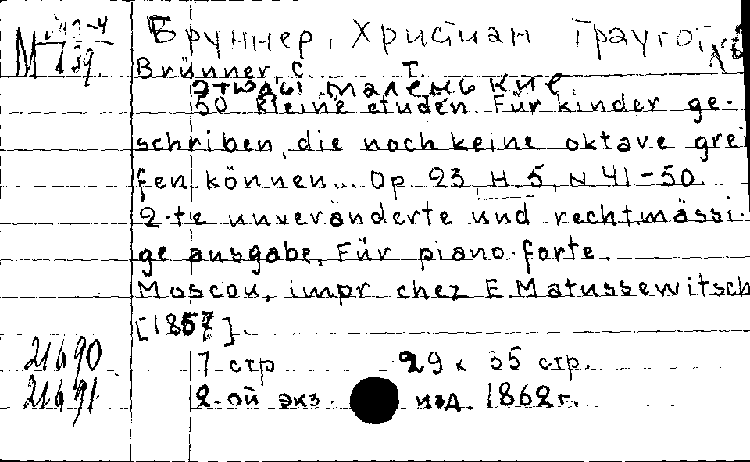 Бруннер, Христиан Трауго
M
Brünner, C. T.
этюды маленькие
50 kleine etuden. Für kinder ge-
schriben, die noch keine oktave grei
fen können... Op. 23, H. 5, N 41-50.
2-te unveränderte und rechtmässi-
ge ausgabe. Für piano-forte.
Moscou, impr chez E. Matussewitsch
[1857].
21690 7 стр 29 х 35 стр.
21691 2-ой экз. изд. 1862г.